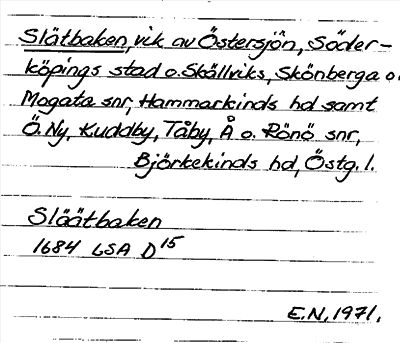 Slätbaken, vik av Östersjön, Söder-
köpings stad o. Skällviks, Skönberga o.
Mogata snr, Hammarkinds hd samt
Ö. Ny, Kuddby, Tåby, Å o. Rönö snr,
Björkekinds hd, Östg. l.
Släätbaken
1684 LSA D15
E.N. 1971.